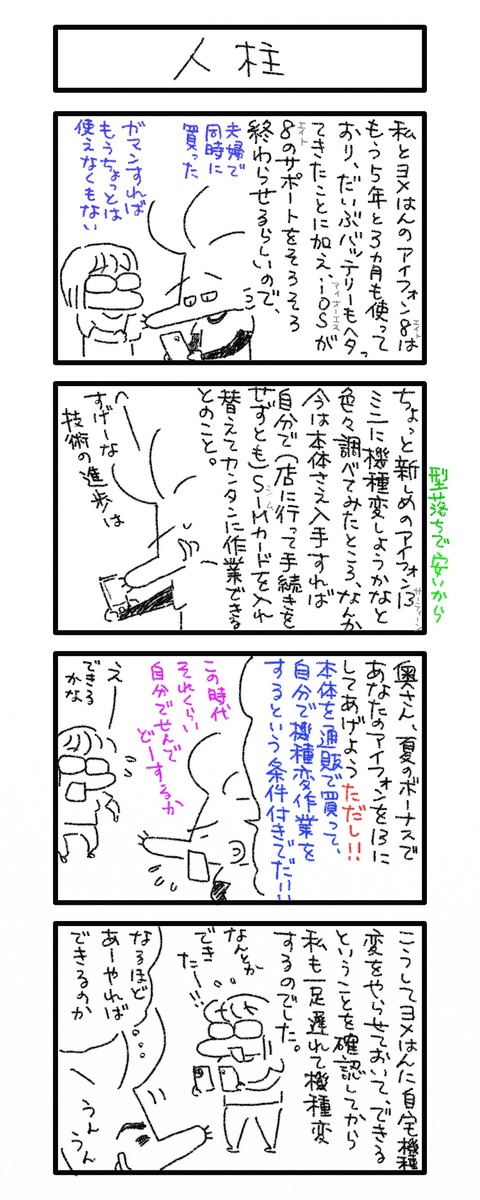 人柱
私とヨメはんのアイフォン8は
エイト
もう5年と3カ月も使って
おり、だいぶバッテリーもヘタっ
てきたことに加え、iOSが
アイオーエス
8のサポートをそろそろ
エイト
終わらせるらしいので、
夫婦で
同時に
買った
ガマンすれば
もうちょっとは
使えなくもない
型落ちで安いから
ちょっと新しめのアイフォン13
サーティーン
ミニに機種変しようかなと
色々調べてみたところ、なんか
今は本体さえ入手すれば
自分で(店に行って手続きを
せずとも)SIMカードを入れ
シム
替えてカンタンに作業できる
とのこと。
すげーな
技術の進歩は
奥さん、夏のボーナスで
あなたのアイフォンを13に
してあげようただし!!
本体を通販で買って、
自分で機種変作業を
するという条件付きでだ!!
この時代
それくらい
自分でせんで
どーするか
えー
できる
かな
こうしてヨメはんに自宅機種
変をやらせておいて、できる
ということを確認してから
私も一足遅れて機種変
するのでした。
なんとか
でき
たー!!
なるほど
あーやれば
できるのか
うんうん